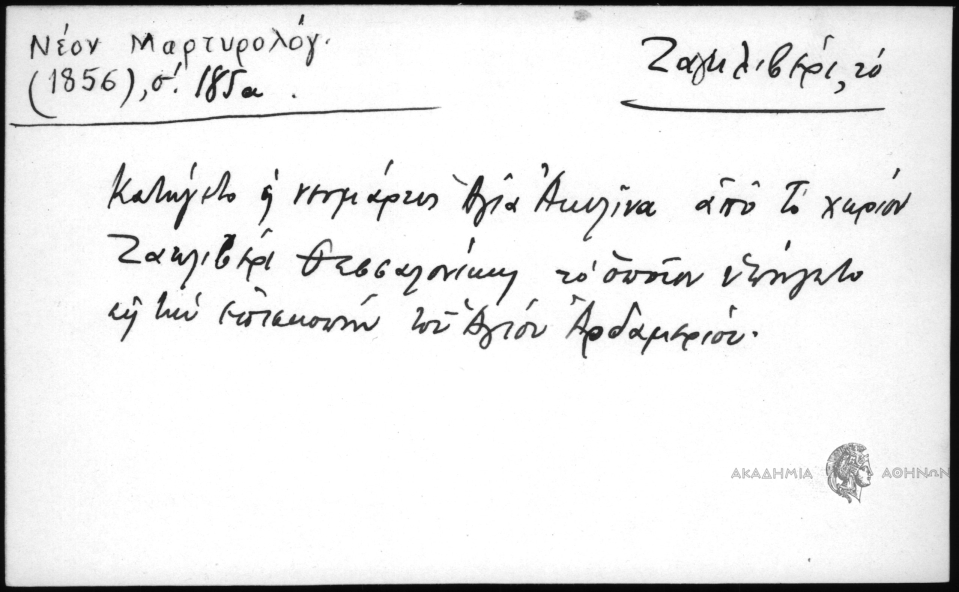 Νέον Μαρτυρολόγ.
(1856), σ. 185α.
Ζαγκλιβέρι, τό
Κατήγετο ἡ νεομάρτυς Ἁγία Ἀκυλῖνα ἀπό τό χωρίον
Ζακλιβέρι Θεσσαλονίκης τό ὁποῖον ὑπήγετο
εἰς τήν ἐπισκοπήν τοῦ Ἁγίου Ἀρδαμερίου.
ΑΚΑΔΗΜΙΑ ΑΘΗΝΩΝ